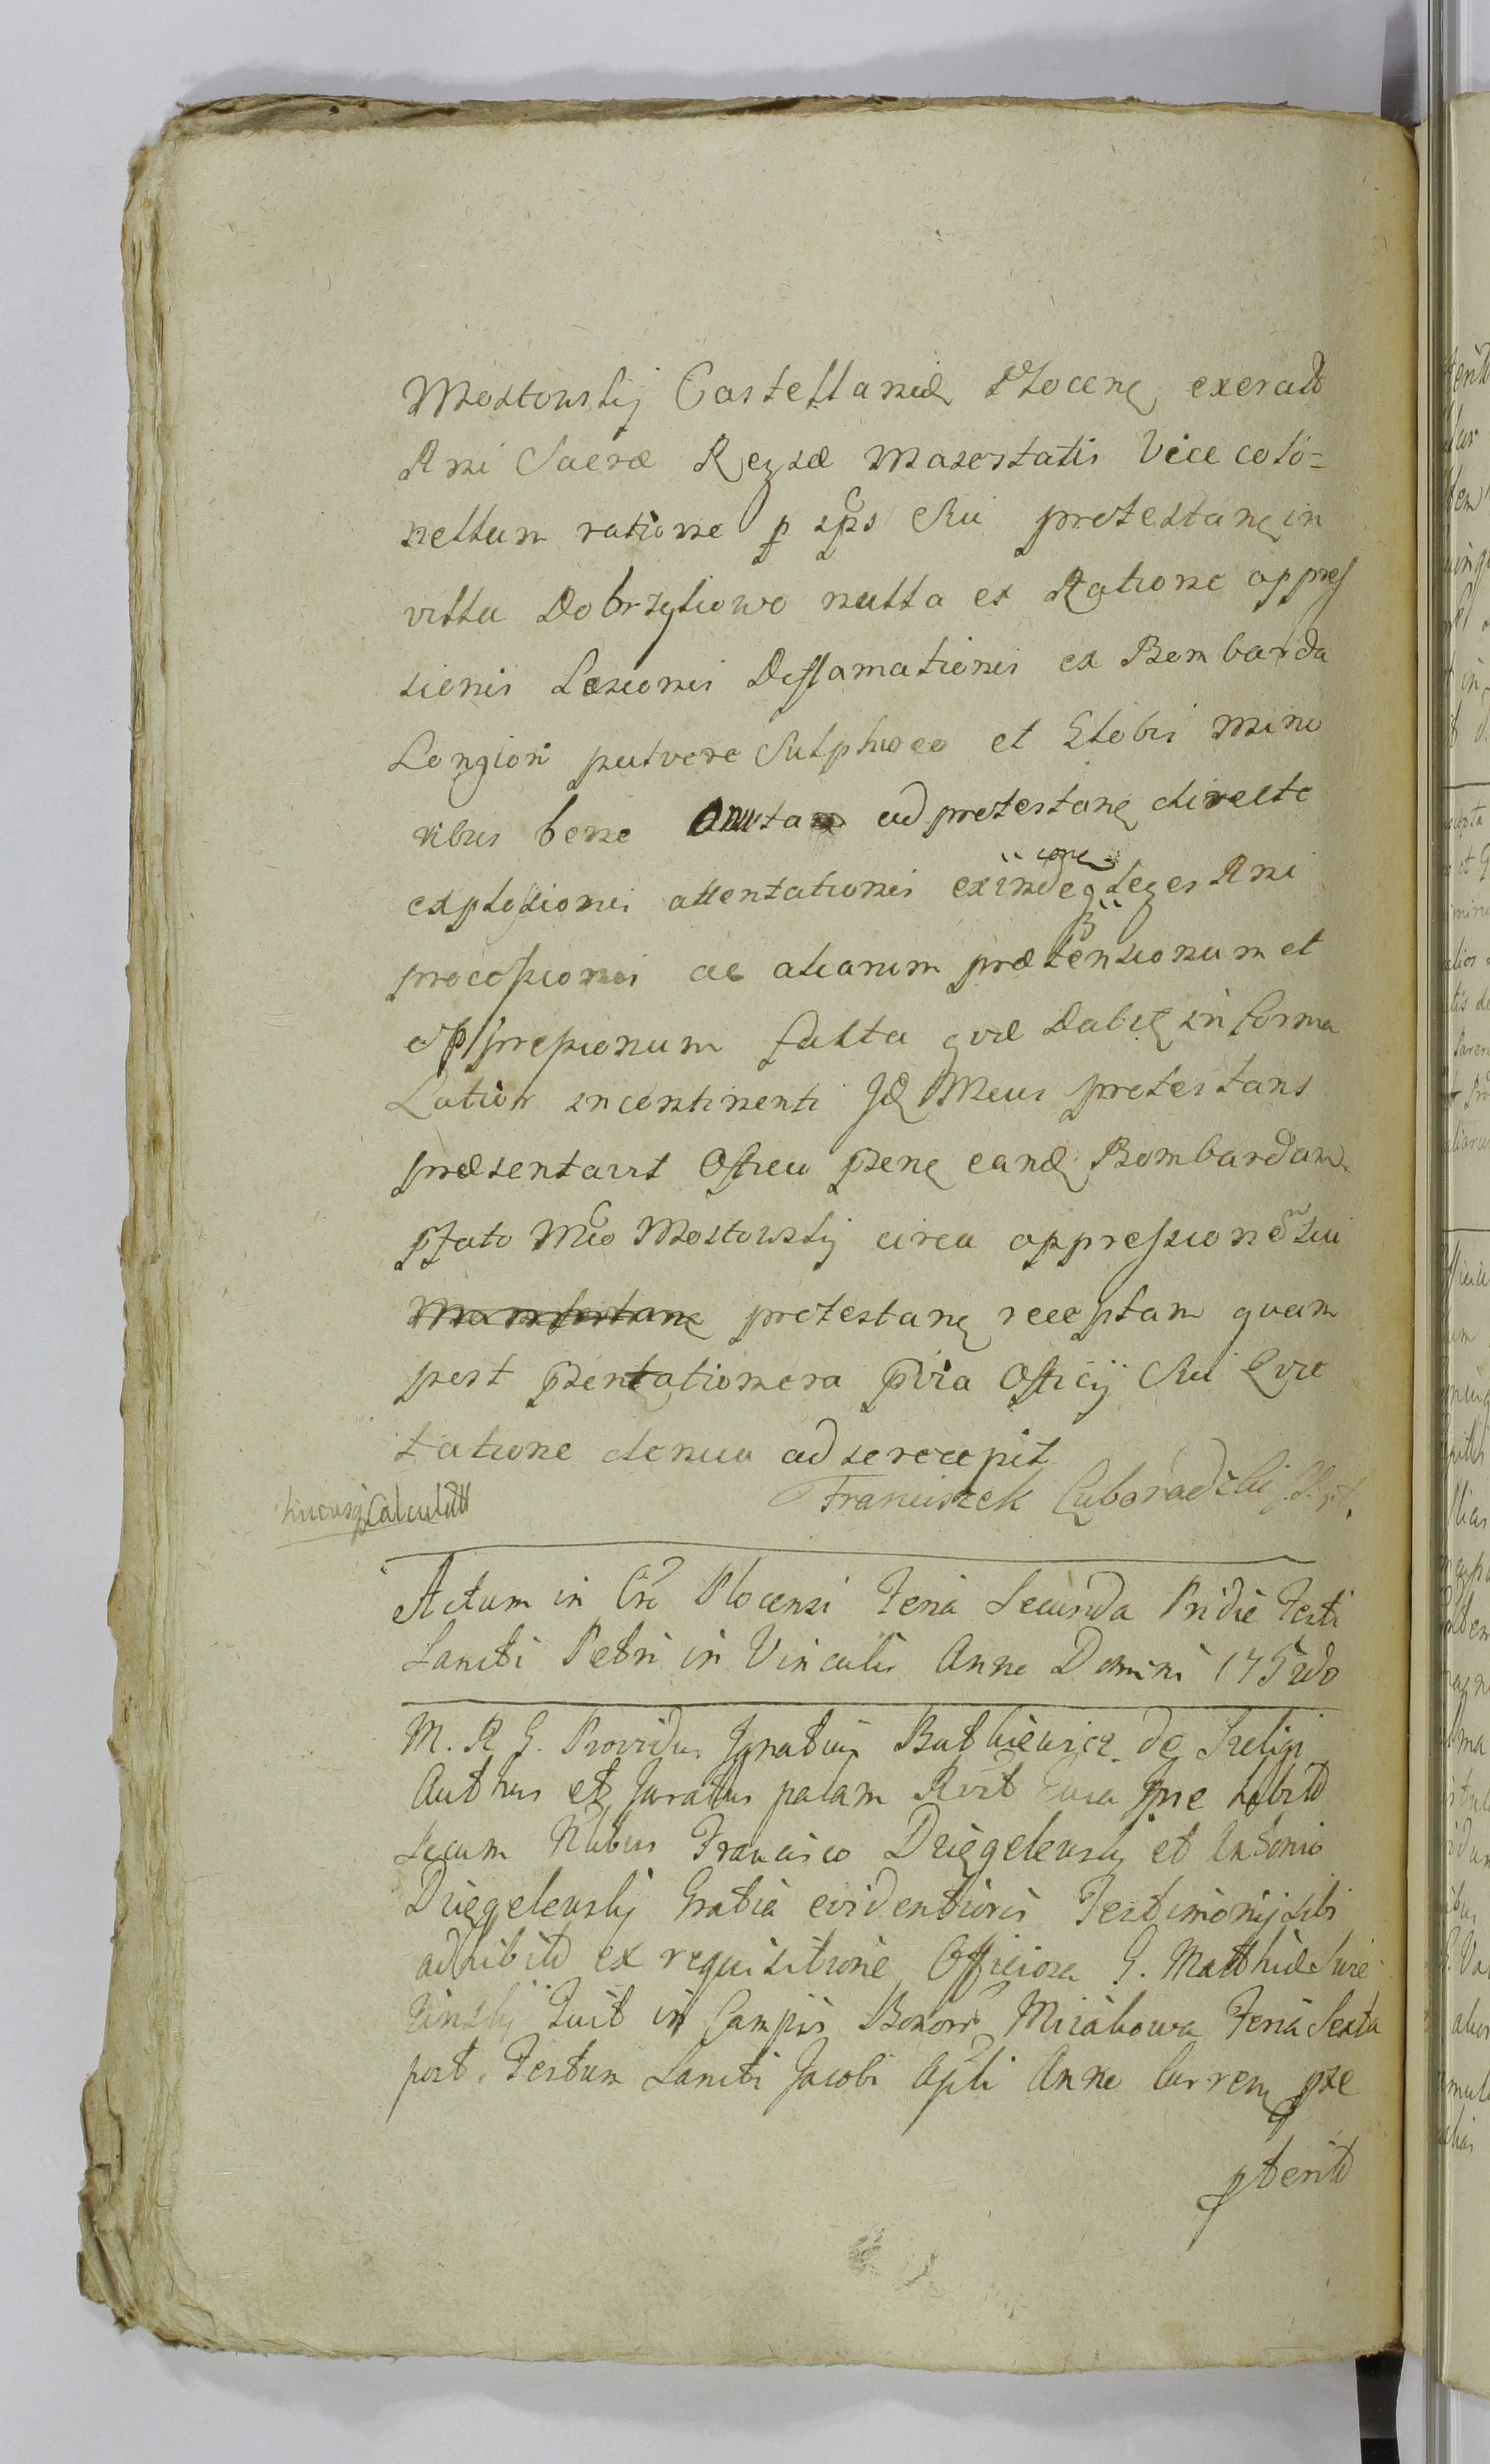 Mostowskij Castellanidę Płocenę exercit̃
Rni Sacræ Regiæ Majestatis Vice colo=
nellum ratione p sps Sui protestanę in
villa Dobrzykowo nulla et Ratione oppres
sionis Læsionis Diffamationis ex Bombarda
Longiori pulvere Sulphureo et Globis mino
ribus bene ad protestanę directe
explosionis attentationis exinde leges Rni
processionis ac aliarum prætensionum et
oppressionum facta quæ dabitę in forma
Latiori incontinenti Idę Meus protestans
præsentavit Officio psenę eandę Bombardam
pfato Mco Mostowskij circa oppressionem sui
protestanę receptam quam
post psentationem pvia Officij Sui Qvie
tatione denuo ad se recepit
Franciszek Luboradzki
Calculat̃
Actum in Crō Plocensi Feria Secunda Pridie Festi
Sancti Petri in Vinculis Anno Domini 175
M. R. G. Providus Ignatius Butkiewicz de Szeligi
Authus et Juratus palam Rvit Quia Ipse habitis
secum Nbbus Francisco Dzięgelewskij et Antonio
Dzięgelewskij Gratia evidentioris Testimonij sibi
adhibitis ex requisitione Officiosa G. Matthiæ Swie
zinskij Fuit in Campis Bonorr Mirakowa Feria Sexta
post Festum Sancti Jacobi Apli Anno Currenę pxe
pterit̃